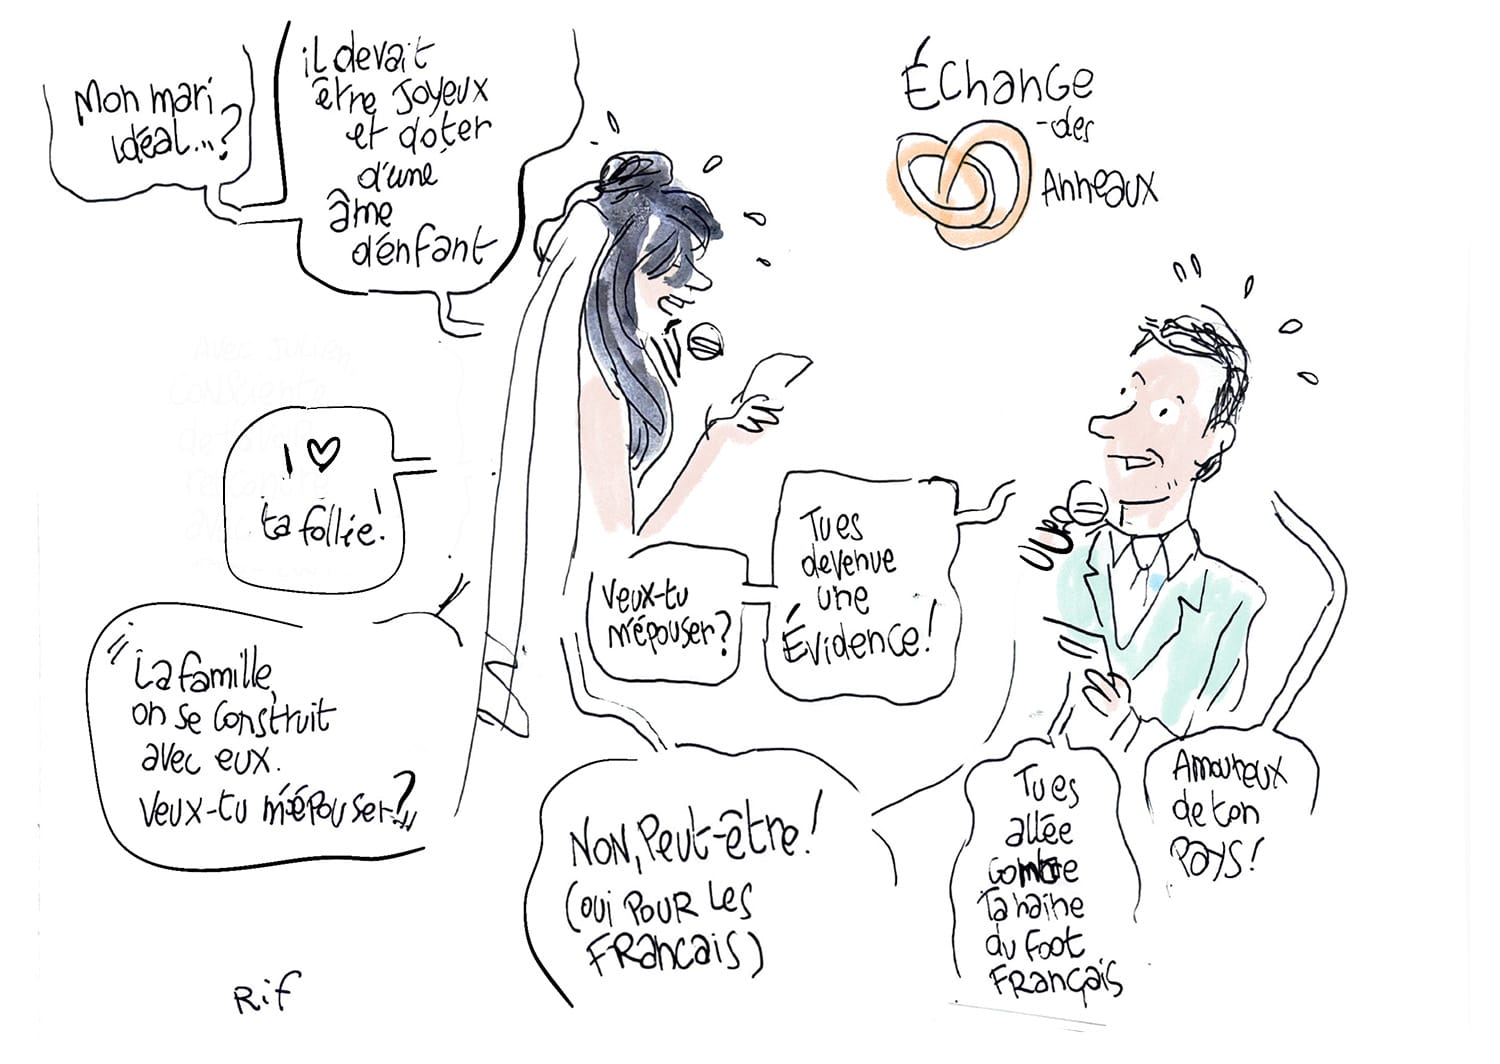 Mon mari
idéal...?
il devait
être joyeux
et doter
d'une
âme
d'énfant
ÉChanGe
-des
Anneaux
I ♡
ta folie!
Tu es
devenue
une
Évidence!
Veux-tu
m'épouser?
"La famille,
on se construit
avec eux.
Veux-tu m'épouser?"
NON, Peut-être!
(oui POUR Les
FRancais)
Tu es
allée
contre
Ta haine
du foot
FRançais
Amoureux
de ton
PAYS!
Rif